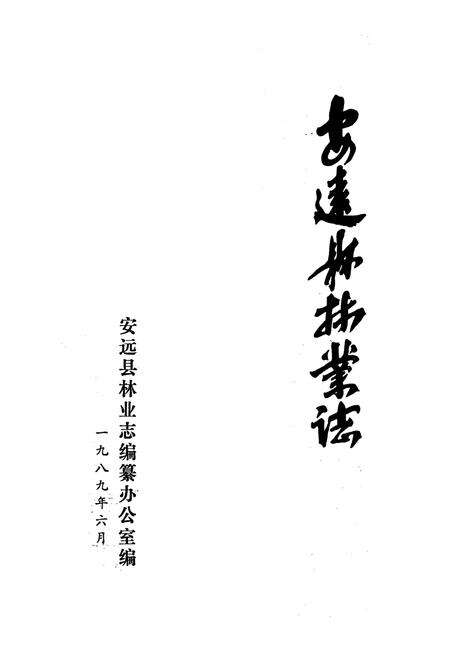 安遠縣林業誌
安远县林业志编纂办公室编
一九八九年六月